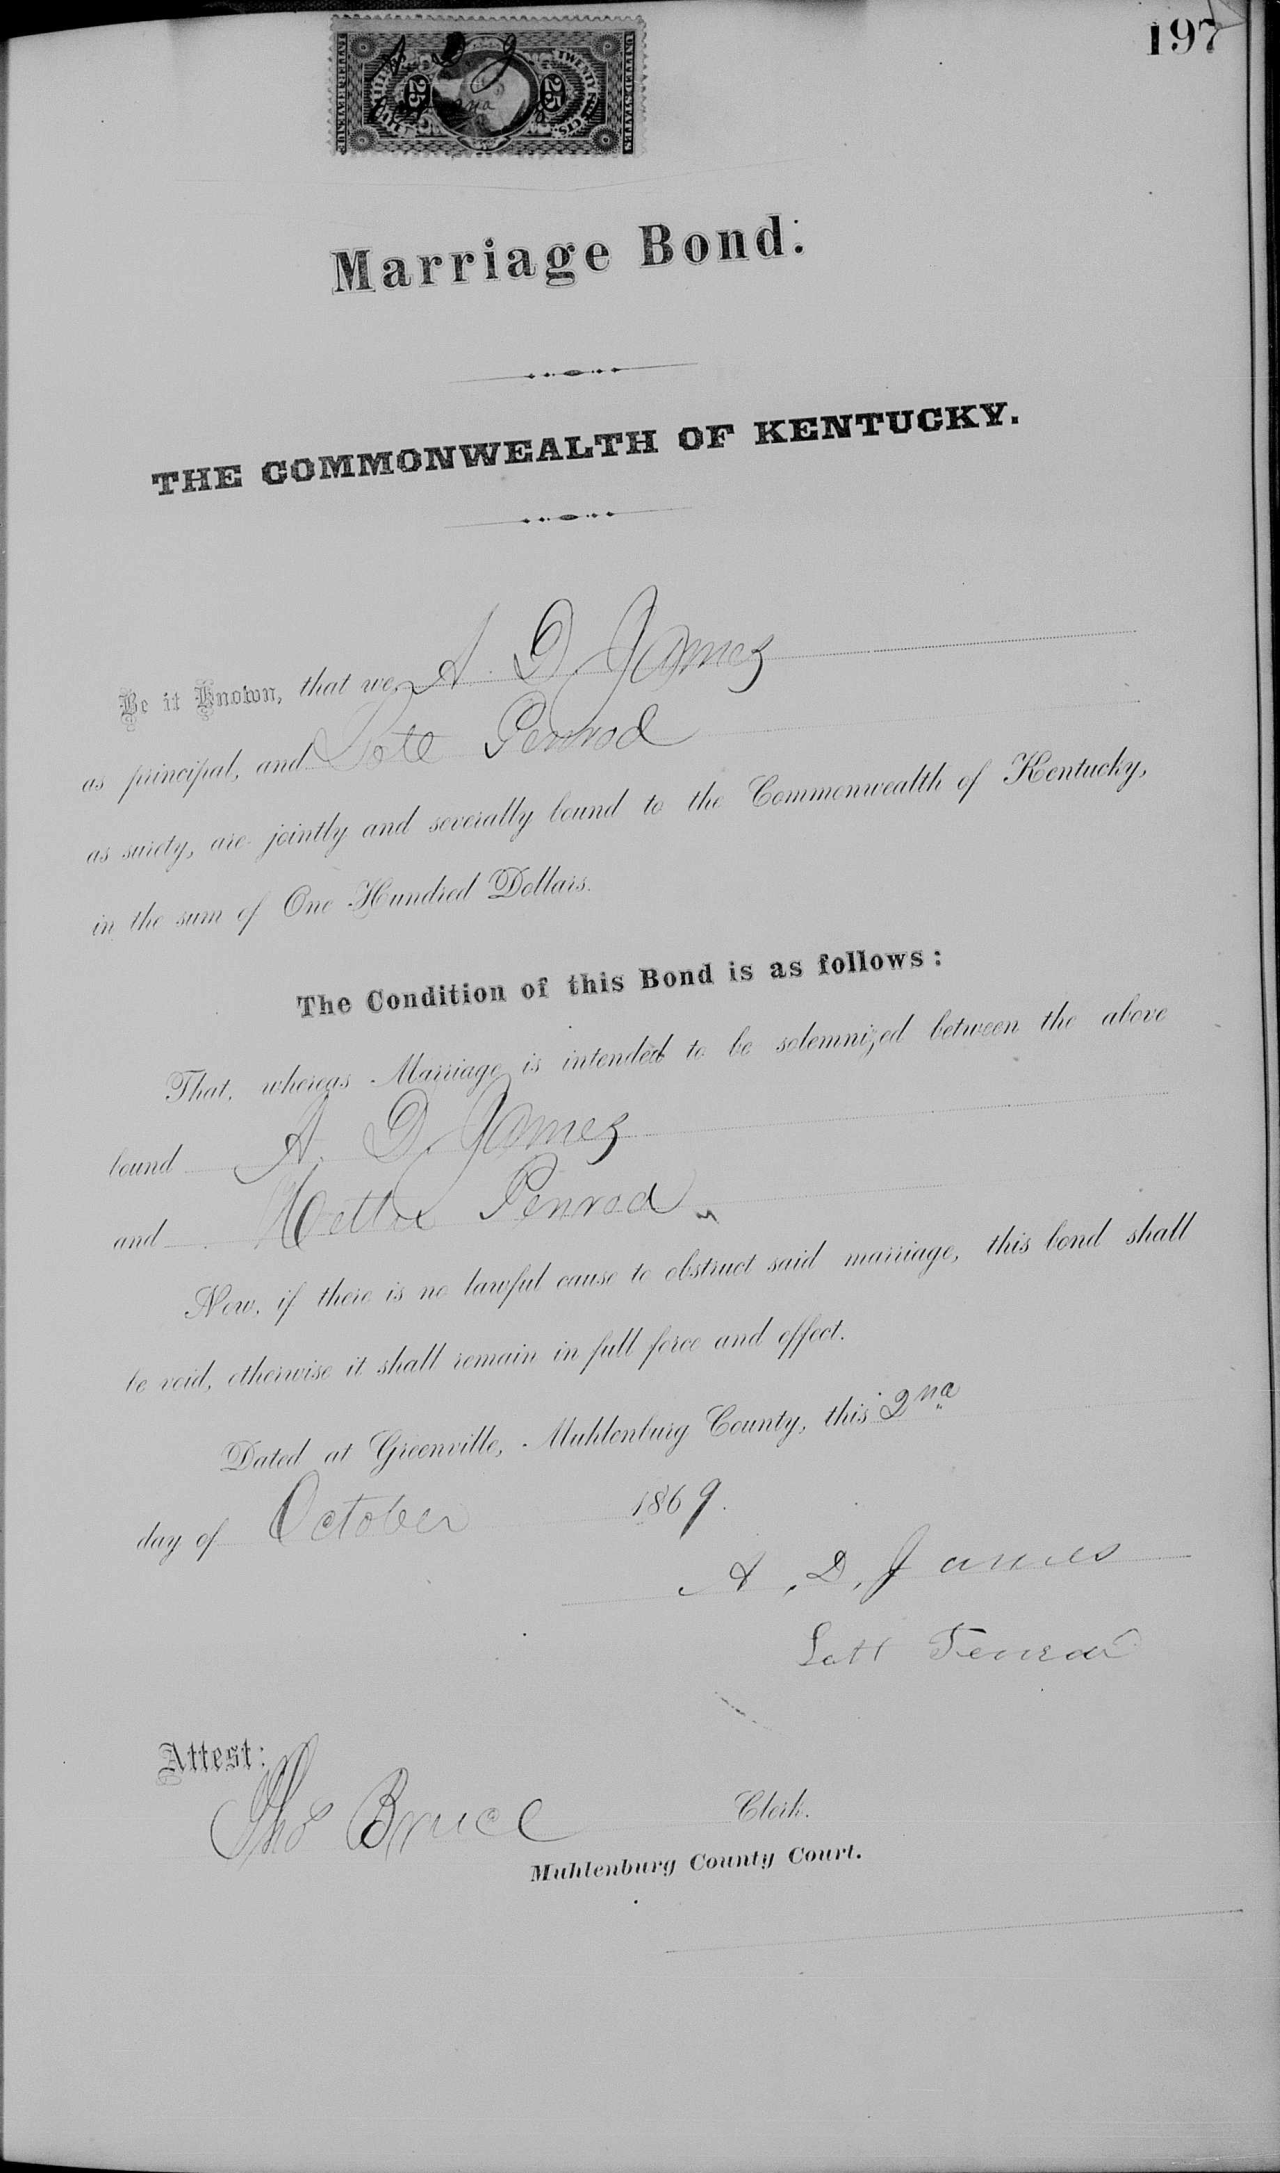 197
A D J
UNITED STATES
INTER. REVENUE
TWENTY FIVE CTS.
25 25
Oct 2nd
Marriage Bond:
THE COMMONWEALTH OF KENTUCKY.
Be it Known, that we, A. D. James
as principal, and Lott Penrod
as surety, are jointly and severally bound to the Commonwealth of Kentucky,
in the sum of One Hundred Dollars.
The Condition of this Bond is as follows:
That, whereas Marriage is intended to be solemnized between the above
bound A. D. James
and Penrod
Now, if there is no lawful cause to obstruct said marriage, this bond shall
be void, otherwise it shall remain in full force and effect.
Dated at Greenville, Muhlenburg County, this 2nd
day of October 1869.
A. D. James
Lott Penrod
Attest:
Thos Bruce Clerk.
Muhlenburg County Court.